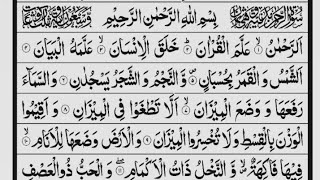 بِسْمِ اللّٰهِ الرَّحْمٰنِ الرَّحِيْمِ
اَلرَّحْمٰنُ ۙ عَلَّمَ الْقُرْاٰنَ ؕ خَلَقَ الْاِنْسَانَ ۙ عَلَّمَهُ الْبَيَانَ
اَلشَّمْسُ وَ الْقَمَرُ بِحُسْبَانٍ ۪ وَّ النَّجْمُ وَ الشَّجَرُ يَسْجُدٰنِ وَ السَّمَآءَ
رَفَعَهَا وَ وَضَعَ الْمِيْزَانَ ۙ اَلَّا تَطْغَوْا فِي الْمِيْزَانِ وَ اَقِيْمُوا
الْوَزْنَ بِالْقِسْطِ وَ لَا تُخْسِرُوا الْمِيْزَانَ وَ الْاَرْضَ وَضَعَهَا لِلْاَنَامِ ۙ
فِيْهَا فَاكِهَةٌ ۪ۙ وَّ النَّخْلُ ذَاتُ الْاَكْمَامِ ۖ وَ الْحَبُّ ذُو الْعَصْفِ